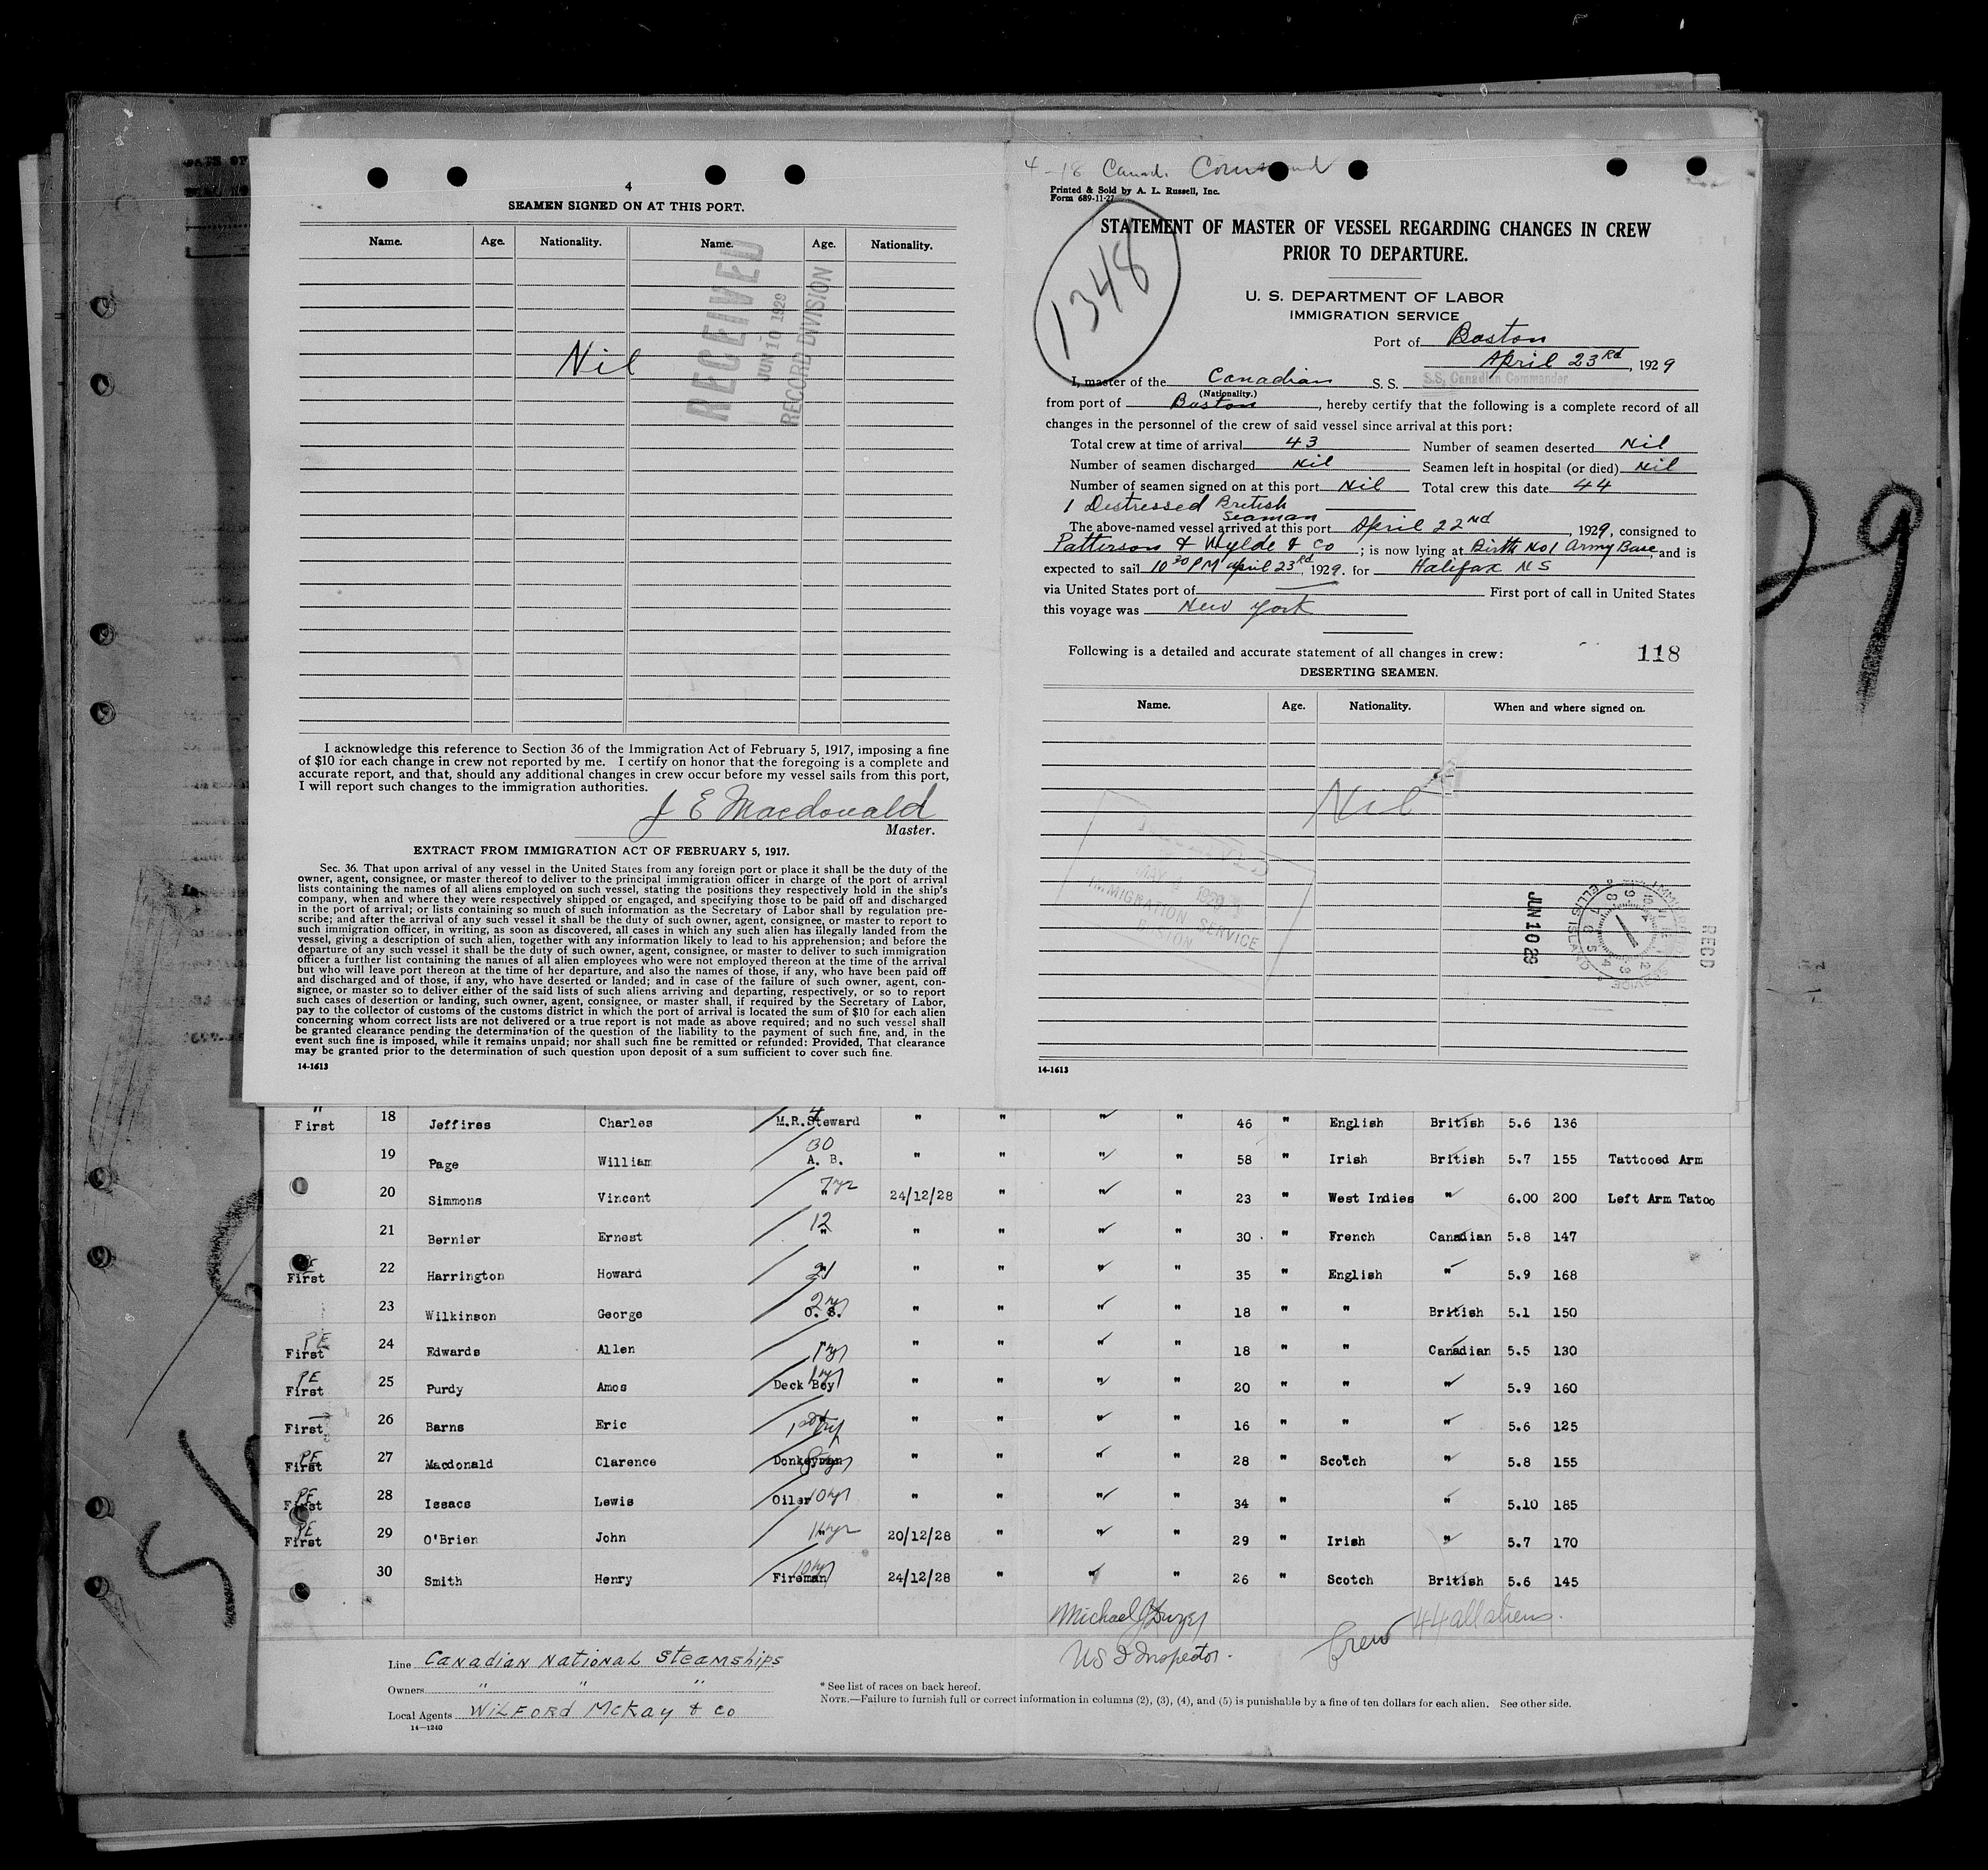 4
SEAMEN SIGNED ON AT THIS PORT.
Name. Age. Nationality. Name. Age. Nationality.
Nil
RECEIVED
JUN 10 1929
RECORD DIVISION
I acknowledge this reference to Section 36 of the Immigration Act of February 5, 1917, imposing a fine
of $10 for each change in crew not reported by me. I certify on honor that the foregoing is a complete and
accurate report, and that, should any additional changes in crew occur before my vessel sails from this port,
I will report such changes to the immigration authorities.
J E Macdonald
Master.
EXTRACT FROM IMMIGRATION ACT OF FEBRUARY 5, 1917.
Sec. 36. That upon arrival of any vessel in the United States from any foreign port or place it shall be the duty of the
owner, agent, consignee, or master thereof to deliver to the principal immigration officer in charge of the port of arrival
lists containing the names of all aliens employed on such vessel, stating the positions they respectively hold in the ship's
company, when and where they were respectively shipped or engaged, and specifying those to be paid off and discharged
in the port of arrival; or lists containing so much of such information as the Secretary of Labor shall by regulation pre-
scribe; and after the arrival of any such vessel it shall be the duty of such owner, agent, consignee, or master to report to
such immigration officer, in writing, as soon as discovered, all cases in which any such alien has illegally landed from the
vessel, giving a description of such alien, together with any information likely to lead to his apprehension; and before the
departure of any such vessel it shall be the duty of such owner, agent, consignee, or master to deliver to such immigration
officer a further list containing the names of all alien employees who were not employed thereon at the time of the arrival
but who will leave port thereon at the time of her departure, and also the names of those, if any, who have been paid off
and discharged and of those, if any, who have deserted or landed; and in case of the failure of such owner, agent, con-
signee, or master so to deliver either of the said lists of such aliens arriving and departing, respectively, or so to report
such cases of desertion or landing, such owner, agent, consignee, or master shall, if required by the Secretary of Labor,
pay to the collector of customs of the customs district in which the port of arrival is located the sum of $10 for each alien
concerning whom correct lists are not delivered or a true report is not made as above required; and no such vessel shall
be granted clearance pending the determination of the question of the liability to the payment of such fine, and, in the
event such fine is imposed, while it remains unpaid; nor shall such fine be remitted or refunded: Provided, That clearance
may be granted prior to the determination of such question upon deposit of a sum sufficient to cover such fine.
14-1613
4-18 Canad. Command
Printed & Sold by A. L. Russell, Inc.
Form 689-11-27
1348
STATEMENT OF MASTER OF VESSEL REGARDING CHANGES IN CREW
PRIOR TO DEPARTURE.
U. S. DEPARTMENT OF LABOR
IMMIGRATION SERVICE
Port of Boston
April 23rd, 1929
I, master of the Canadian S. S. S.S. Canadian Commander
(Nationality.)
from port of Boston, hereby certify that the following is a complete record of all
changes in the personnel of the crew of said vessel since arrival at this port:
Total crew at time of arrival 43 Number of seamen deserted Nil
Number of seamen discharged Nil Seamen left in hospital (or died) Nil
Number of seamen signed on at this port Nil Total crew this date 44
1 Distressed British
Seaman
The above-named vessel arrived at this port April 22nd, 1929, consigned to
Patterson & Wylde & Co; is now lying at Birth No1 Army Base, and is
expected to sail 10 30 PM april 23rd, 1929. for Halifax NS
via United States port of First port of call in United States
this voyage was New York
Following is a detailed and accurate statement of all changes in crew:
118
DESERTING SEAMEN.
Name. Age. Nationality. When and where signed on.
Nil
MAY 1929
IMMIGRATION SERVICE
BOSTON
JUN 10 29
ELLIS ISLAND
RECD
14-1613
29
" First 18 Jeffires Charles 4 M.R.Steward " " " " 46 " English British 5.6 136
19 Page William 30 A. B. " " " " 58 " Irish British 5.7 155 Tattooed Arm
20 Simmons Vincent 7 yr " 24/12/28 " " " 23 " West Indies " 6.00 200 Left Arm Tatoo
21 Bernier Ernest 12 " " " " " 30 " French Canadian 5.8 147
First 22 Harrington Howard " " " " 35 " English " 5.9 168
23 Wilkinson George 2 yr O. S. " " " " 18 " " British 5.1 150
PE First 24 Edwards Allen 1 yr " " " " 18 " " Canadian 5.5 130
PE First 25 Purdy Amos 1 yr Deck Boy " " " " 20 " " " 5.9 160
First 26 Barns Eric 1st Trip " " " " 16 " " " 5.6 125
PE First 27 Macdonald Clarence Donkeyman " " " " 28 " Scotch " 5.8 155
PE First 28 Issacs Lewis Oiler 10 yr " " " " 34 " " 5.10 185
PE First 29 O'Brien John 20/12/28 " " " 29 " Irish " 5.7 170
30 Smith Henry 10 yr Fireman 24/12/28 " " " 26 " Scotch British 5.6 145
Michael
US I Inspector.
Crew 44 all aliens.
Line Canadian National Steamships
Owners " " "
Local Agents Wilford McKay & Co
14-1240
* See list of races on back hereof.
NOTE.—Failure to furnish full or correct information in columns (2), (3), (4), and (5) is punishable by a fine of ten dollars for each alien. See other side.